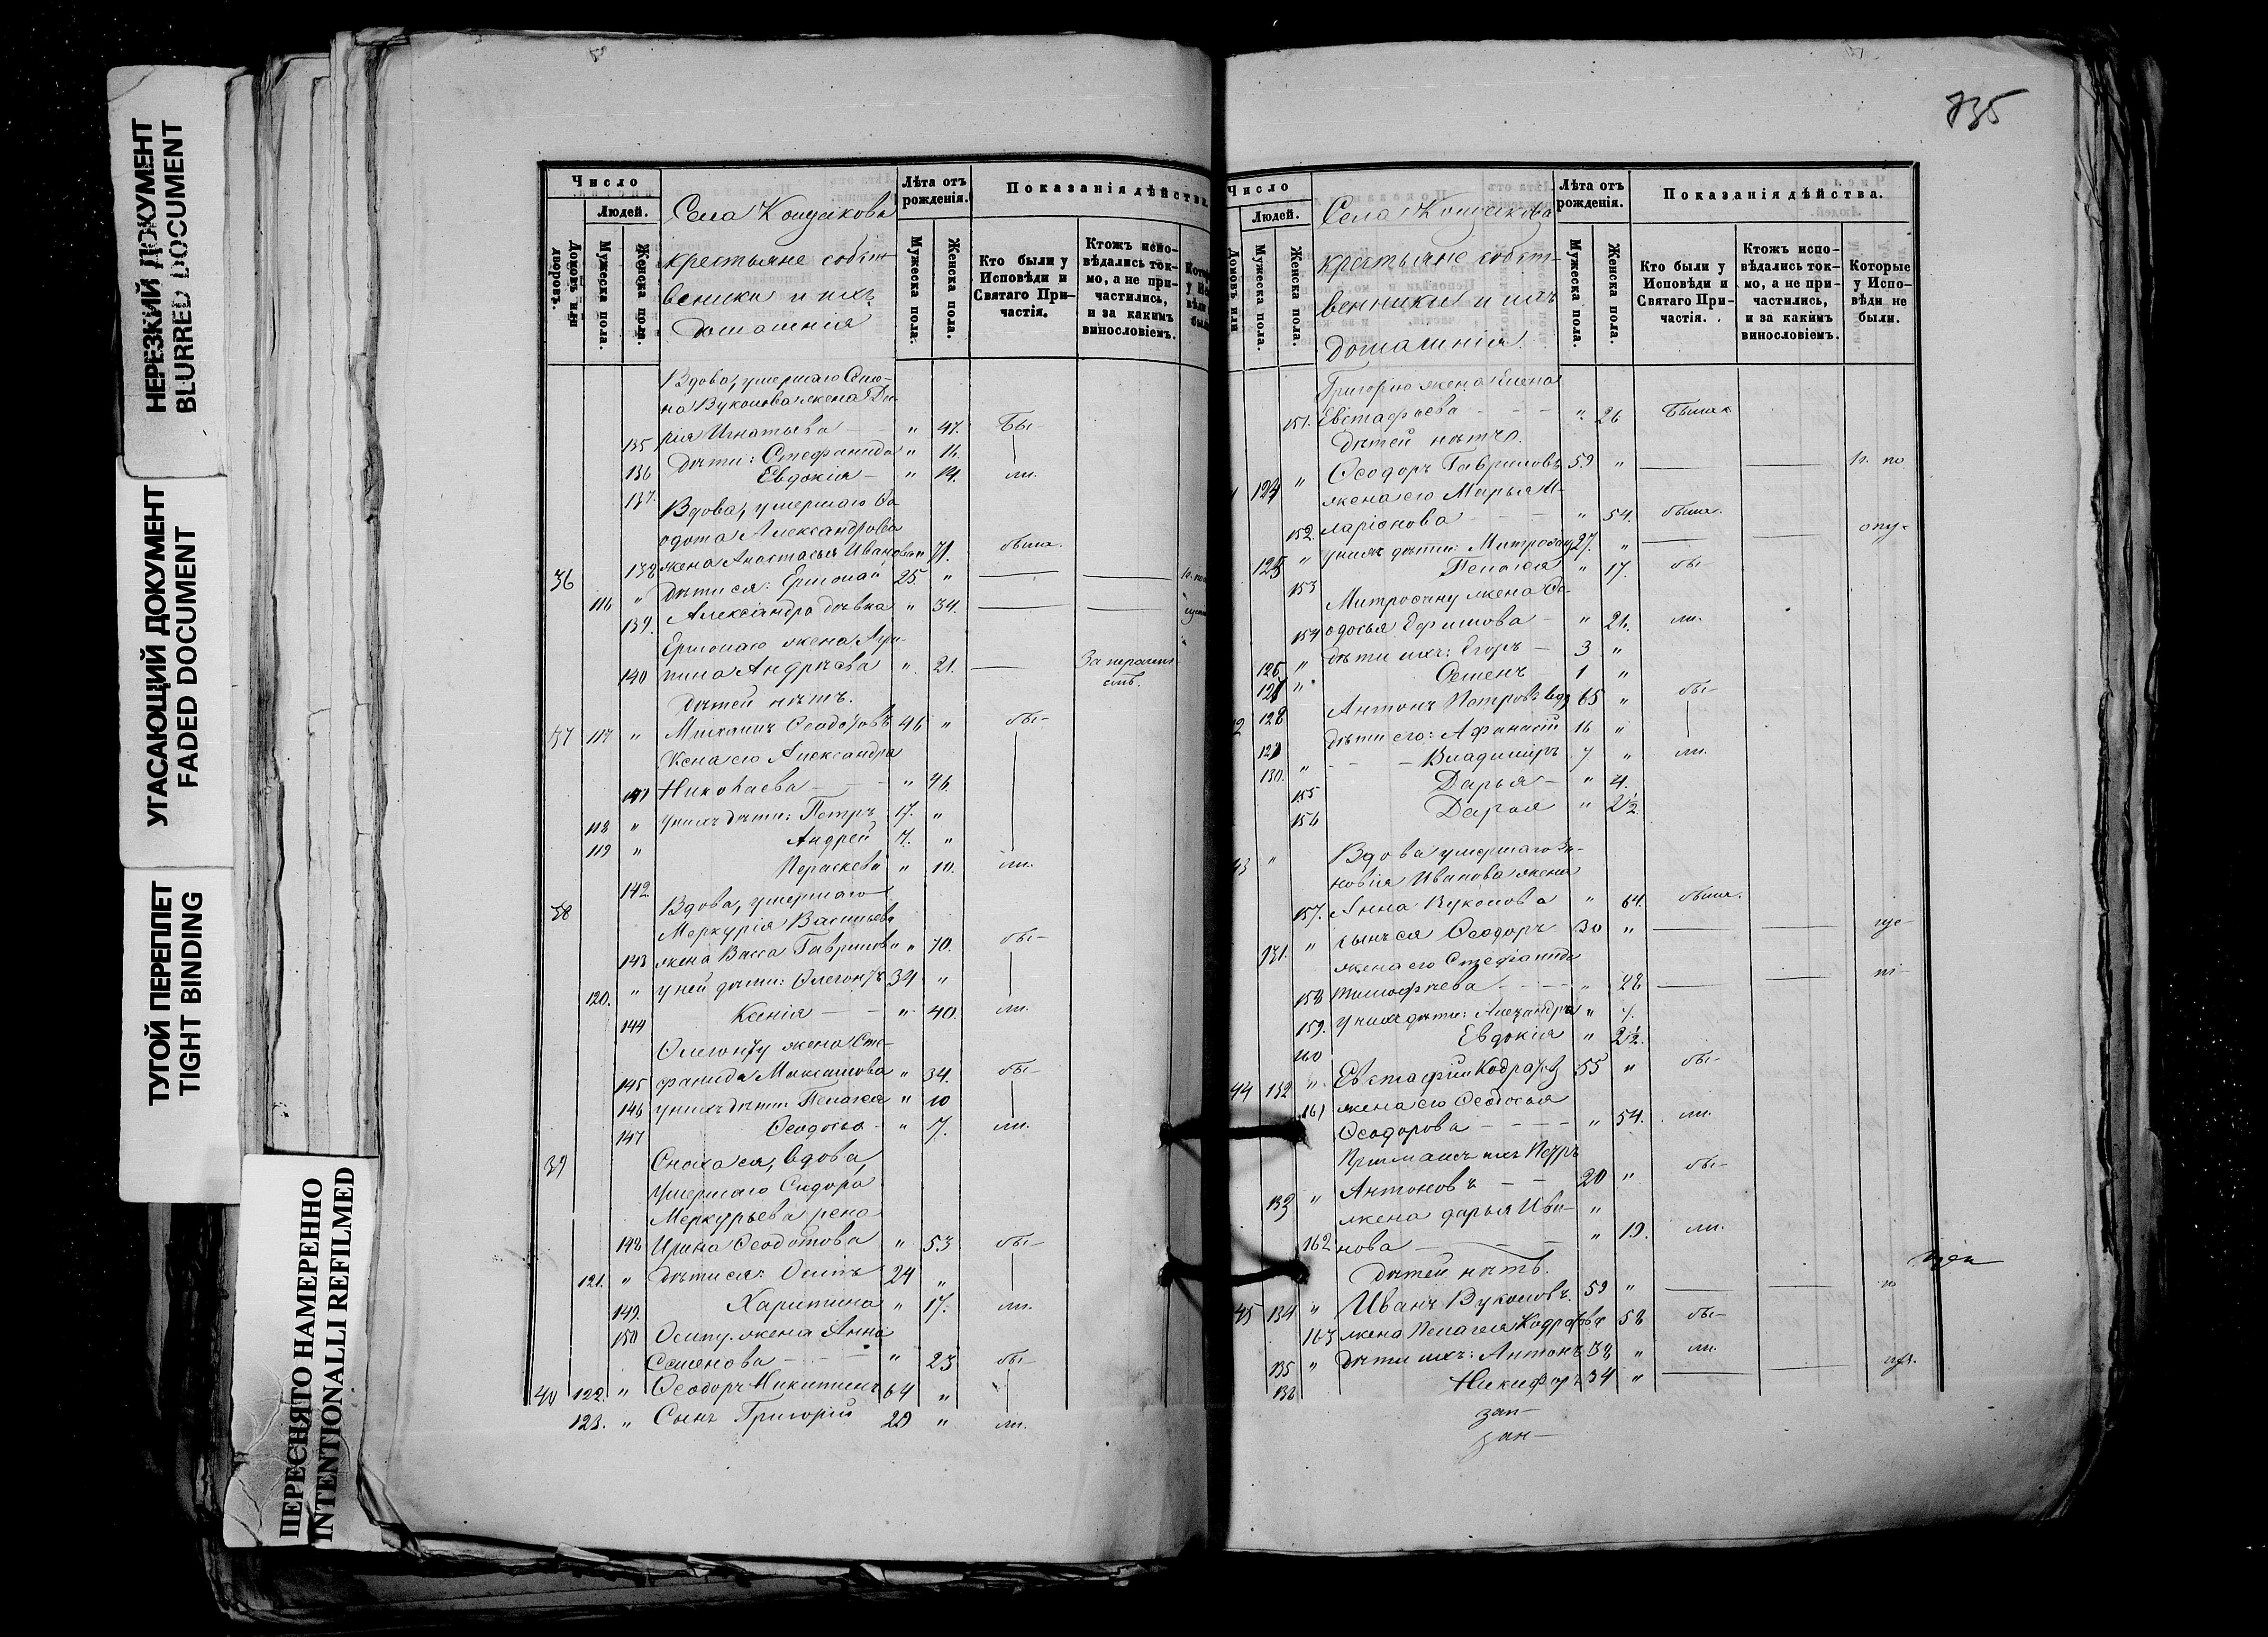 НЕРЕЗКИЙ ДОКУМЕНТ
BLURRED DOCUMENT
УГАСАЮЩИЙ ДОКУМЕНТ
FADED DOCUMENT
ТУГОЙ ПЕРЕПЛЕТ
TIGHT BINDING
ПЕРЕСНЯТО НАМЕРЕННО
INTENTIONALLI REFILMED
Число
Людей.
Домовъ или дворовъ.
Мужеска пола.
Женска пола.
Села
крестьяне собст
веники и ихъ
домашнія
Лѣта отъ рожденія.
Мужеска пола.
Женска пола.
Показанія дѣйства.
Кто были у Исповѣди и Святаго Причастія.
Ктожъ исповѣдались токмо, а не причастились, и за какимъ винословіемъ.
Вдова, умершаго
на Вуколова жена Да
135 рія Игнатьева " 47. Бы-
136 дѣти: Стефанида " 16.
137. Евдокія " 14. ли.
Вдова, умершаго Ѳе
одота Александрова
36 138 жена Анастасья Иванова " 71. была.
116 " дѣти ея: Ермолай 25 "
139. Александра дѣвка " 34.
Ермолаю жена Агри-
140 пина Андрѣева " 21.
дѣтей нѣтъ.
37 117 " Михаилъ Ѳеодотовъ 46 " бы-
Жена его Александра
141 Николаева " 46.
118 " у нихъ дѣти: Петръ 17. "
119 " Андрей 7. "
142 Параскева " 10. ли.
38 Вдова, умершаго
Меркурія Васильева
143 жена Васса Гаврилова " 70. бы-
120. " у ней дѣти: Олегонтъ 39 "
144 Ксенія " 40. ли.
Олегонту жена Сте-
145 фанида Максимова " 34. бы-
146 у нихъ дѣти: Пелагея " 10
147 Ѳеодосья " 7. ли.
39 Сноха ея, вдова,
умершаго Сидора
Меркурьева жена
148 Ирина Ѳеодотова " 53 бы-
121. " дѣти ея: Осипъ 24 "
149. Харитина " 17. ли.
150 Осипу жена Анна
Семенова " 23 бы-
40 122. " Ѳеодоръ Никитинъ 64 "
123. " Сынъ Григорій 29 " ли.
735
Число
Людей.
Домовъ или
Мужеска пола.
Женска пола.
Села
крестьяне собст-
венники и ихъ
домашнія
Лѣта отъ рожденія.
Мужеска пола.
Женска пола.
Показанія дѣйства.
Кто были у Исповѣди и Святаго Причастія.
Ктожъ исповѣдались токмо, а не причастились, и за какимъ винословіемъ.
Которые у Исповѣди не были.
Григорію жена Елена
151. Евстафьева " 26 Была.
дѣтей нѣтъ.
124 " Ѳеодоръ Гавриловъ 59 "
жена его Марья И-
152. ларіонова " 54. была.
125 " у нихъ дѣти: Митрофанъ 27. "
153 Пелагея " 17. бы
Митрофану жена Ѳе-
154 одосья Ефимова " 26. ли.
126 " дѣти ихъ: Егоръ 3 "
127 " Семенъ 1 "
128 Антонъ Петровъ вдо 65 " бы-
129 дѣти его: Афанасій 16 "
130. " Владиміръ 7 " ли.
155 Дарья " 4.
156 Дарья " 2½
Вдова умершаго Зи-
новія Иванова жена
157. Анна Вуколова " 64. была.
131. " сынъ ея Ѳеодоръ 30 "
жена его Стефанида
158 Тимофѣева " 28
159. у нихъ дѣти: Александра " 7.
160 Евдокія " 2½.
44 132 " Евстафій Кодратов 55 " бы-
161 жена его Ѳеодосья
Ѳеодорова " 54. ли.
Примакъ ихъ Петръ
133 " Антоновъ 20 " бы-
жена Дарья Ива- "
162 нова " 19. ли.
дѣтей нѣтъ.
45 134 " Иванъ Вуколовъ. 59 "
163 жена Пелагея Кодратова 58 бы-
135 " дѣти ихъ: Антонъ 38 " ли.
136 Никифоръ 34 "